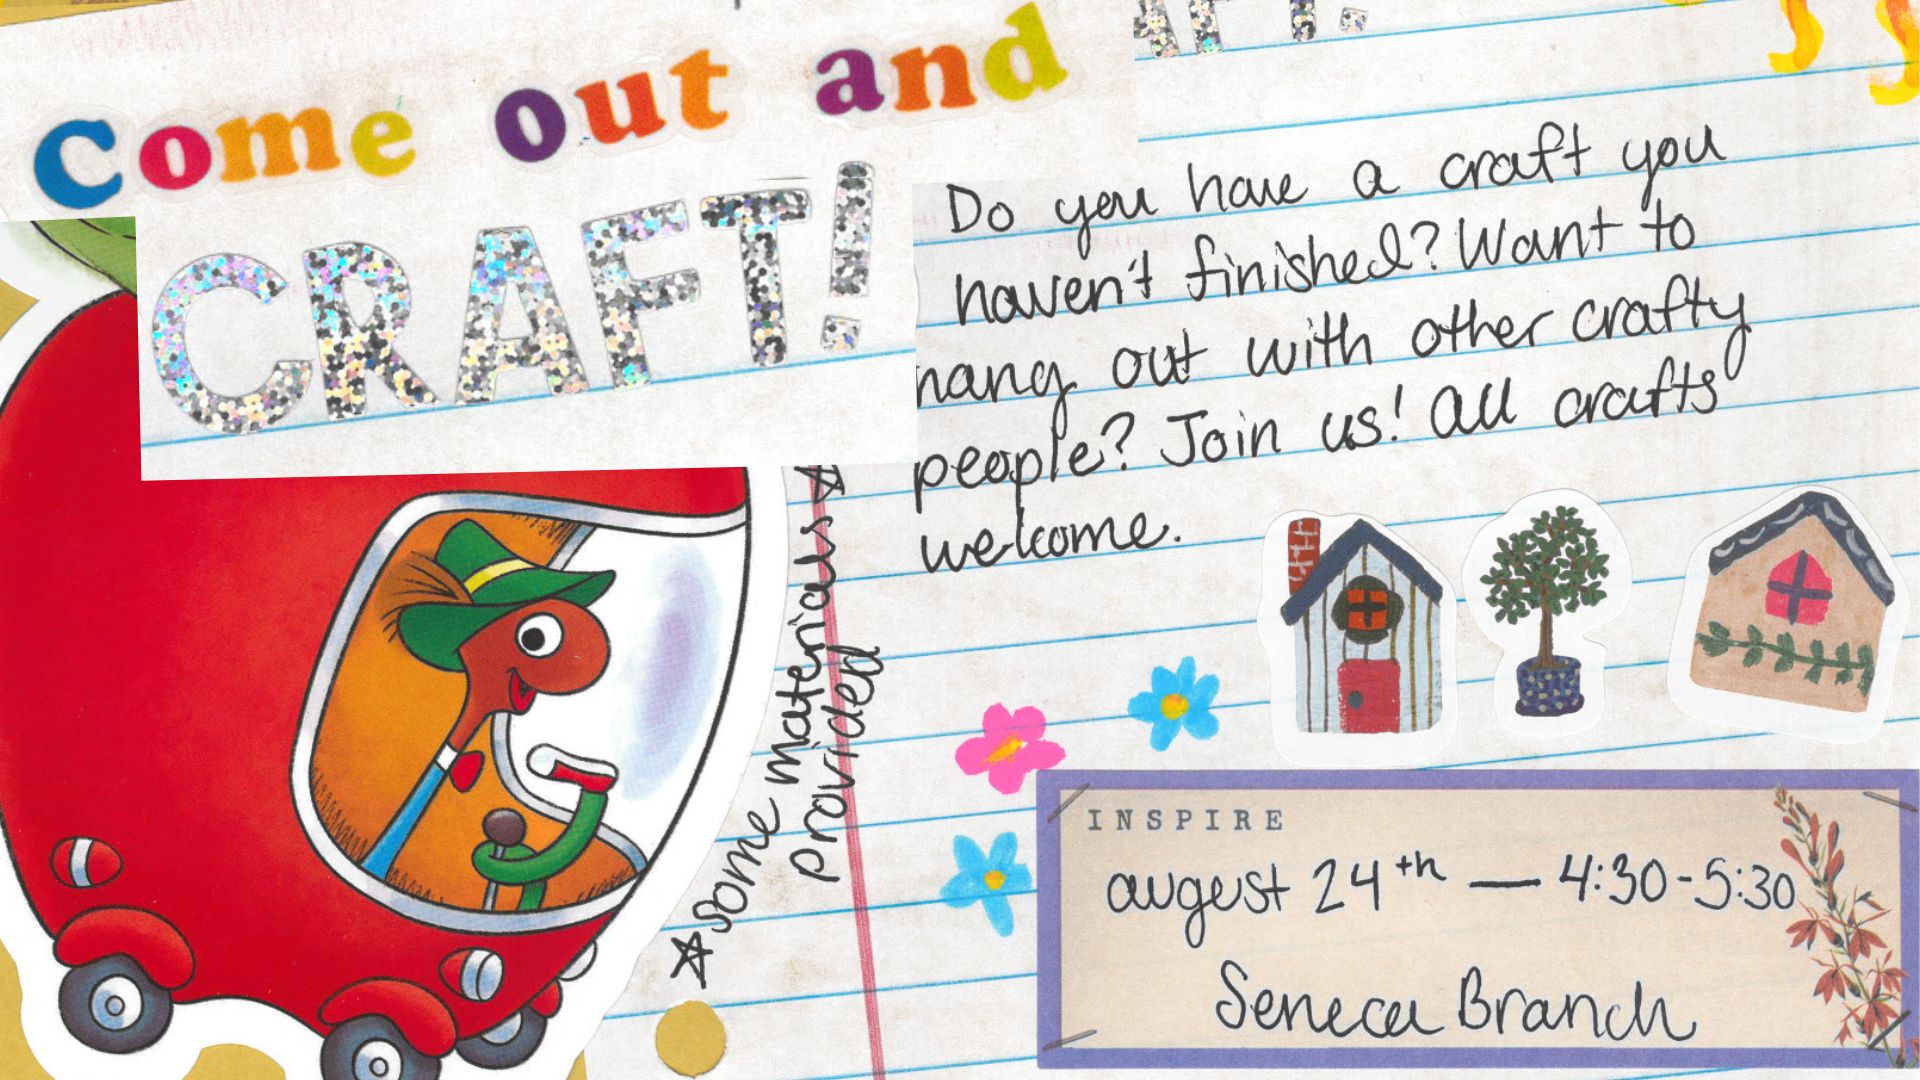 Come out and
CRAFT!
Do you have a craft you
haven't finished? Want to
hang out with other crafty
people? Join us! All crafts
welcome.
☆some materials☆
provided
INSPIRE
august 24th — 4:30-5:30
Seneca Branch